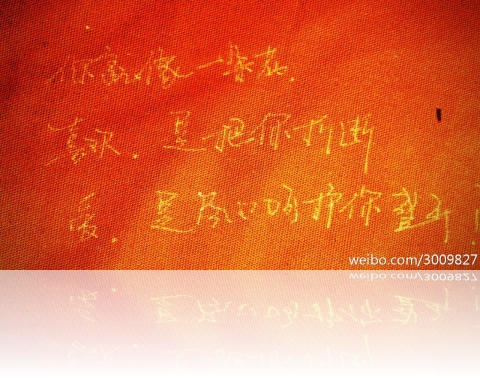 你就像一朵花.
喜欢.是一把你折断
爱.是尽心呵护你盛开!
weibo.com/3009827